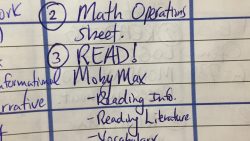 ork ② Math Operations
sheet.
③ READ!
nformational Moby Max
arrative - Reading Info.
- Reading Literature
- Vocabulary